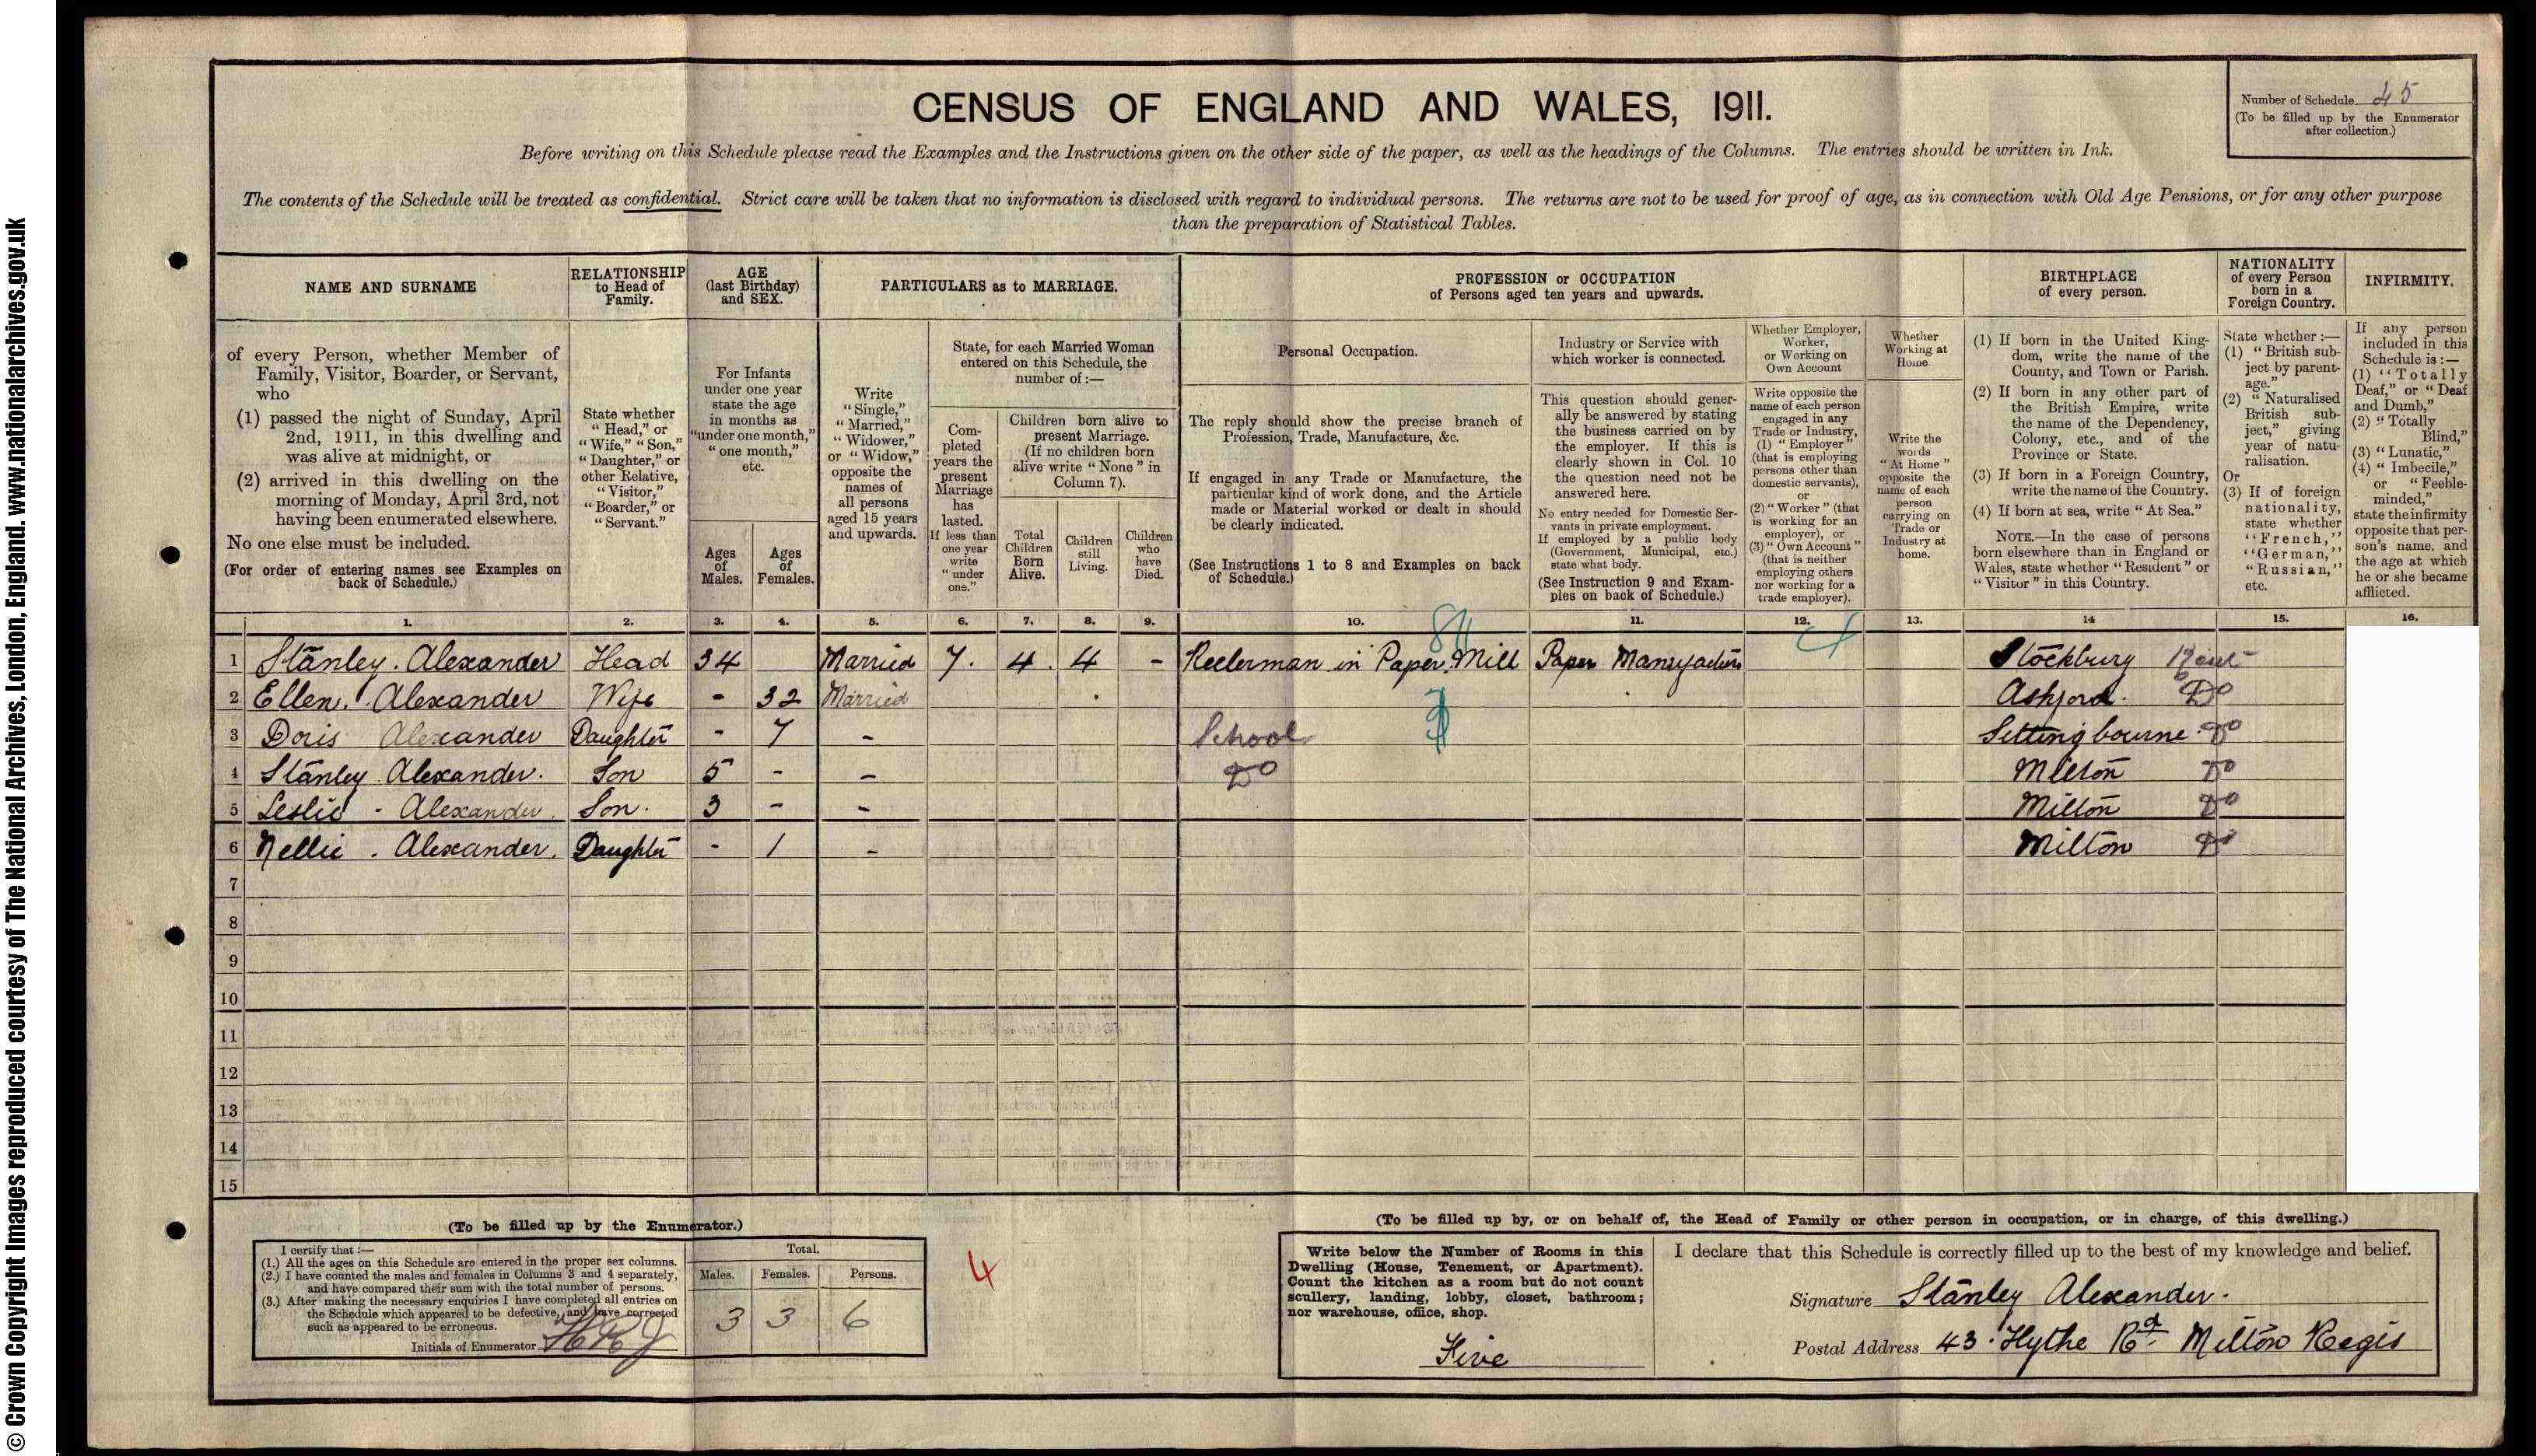 © Crown Copyright Images reproduced courtesy of The National Archives, London, England. www.nationalarchives.gov.uk
CENSUS OF ENGLAND AND WALES, 1911.
Number of Schedule 45
(To be filled up by the Enumerator
after collection.)
Before writing on this Schedule please read the Examples and the Instructions given on the other side of the paper, as well as the headings of the Columns. The entries should be written in Ink.
The contents of the Schedule will be treated as confidential. Strict care will be taken that no information is disclosed with regard to individual persons. The returns are not to be used for proof of age, as in connection with Old Age Pensions, or for any other purpose
than the preparation of Statistical Tables.
NAME AND SURNAME
of every Person, whether Member of
Family, Visitor, Boarder, or Servant,
who
(1) passed the night of Sunday, April
2nd, 1911, in this dwelling and
was alive at midnight, or
(2) arrived in this dwelling on the
morning of Monday, April 3rd, not
having been enumerated elsewhere.
No one else must be included.
(For order of entering names see Examples on
back of Schedule.)
RELATIONSHIP
to Head of
Family.
State whether
"Head," or
"Wife," "Son,"
"Daughter," or
other Relative,
"Visitor,"
"Boarder," or
"Servant."
AGE
(last Birthday)
and SEX.
For Infants
under one year
state the age
in months as
"under one month,"
"one month,"
etc.
Ages
of
Males.
Ages
of
Females.
PARTICULARS as to MARRIAGE.
Write
"Single,"
"Married,"
"Widower,"
or "Widow,"
opposite the
names of
all persons
aged 15 years
and upwards.
State, for each Married Woman
entered on this Schedule, the
number of:—
Com-
pleted
years the
present
Marriage
has
lasted.
If less than
one year
write
"under
one."
Children born alive to
present Marriage.
(If no children born
alive write "None" in
Column 7).
Total
Children
Born
Alive.
Children
still
Living.
Children
who
have
Died.
PROFESSION or OCCUPATION
of Persons aged ten years and upwards.
Personal Occupation.
The reply should show the precise branch of
Profession, Trade, Manufacture, &c.
If engaged in any Trade or Manufacture, the
particular kind of work done, and the Article
made or Material worked or dealt in should
be clearly indicated.
(See Instructions 1 to 8 and Examples on back
of Schedule.)
Industry or Service with
which worker is connected.
This question should gener-
ally be answered by stating
the business carried on by
the employer. If this is
clearly shown in Col. 10
the question need not be
answered here.
No entry needed for Domestic Ser-
vants in private employment.
If employed by a public body
(Government, Municipal, etc.)
state what body.
(See Instruction 9 and Exam-
ples on back of Schedule.)
Whether Employer,
Worker,
or Working on
Own Account
Write opposite the
name of each person
engaged in any
Trade or Industry,
(1) "Employer"
(that is employing
persons other than
domestic servants),
or
(2) "Worker" (that
is working for an
employer), or
(3) "Own Account"
(that is neither
employing others
nor working for a
trade employer).
Whether
Working at
Home.
Write the
words
"At Home"
opposite the
name of each
person
carrying on
Trade or
Industry at
home.
BIRTHPLACE
of every person.
(1) If born in the United King-
dom, write the name of the
County, and Town or Parish.
(2) If born in any other part of
the British Empire, write
the name of the Dependency,
Colony, etc., and of the
Province or State.
(3) If born in a Foreign Country,
write the name of the Country.
(4) If born at sea, write "At Sea."
NOTE.—In the case of persons
born elsewhere than in England or
Wales, state whether "Resident" or
"Visitor" in this Country.
NATIONALITY
of every Person
born in a
Foreign Country.
State whether:—
(1) "British sub-
ject by parent-
age."
(2) "Naturalised
British sub-
ject," giving
year of natu-
ralisation.
Or
(3) If of foreign
nationality,
state whether
"French,"
"German,"
"Russian,"
etc.
INFIRMITY.
If any person
included in this
Schedule is:—
(1) "Totally
Deaf," or "Deaf
and Dumb,"
(2) "Totally
Blind,"
(3) "Lunatic,"
(4) "Imbecile,"
or "Feeble-
minded,"
state the infirmity
opposite that per-
son's name, and
the age at which
he or she became
afflicted.
1. 2. 3. 4. 5. 6. 7. 8. 9. 10. 11. 12. 13. 14 15. 16.
1 Stanley. Alexander Head 34 Married 7. 4. 4 - Reelerman in Paper Mill Paper Manufacture Stockbury Kent
2 Ellen. Alexander Wife - 32 Married Ashford. Do
3 Doris Alexander Daughter - 7 - School Sittingbourne Do
4 Stanley Alexander. Son 5 - - Do Milton Do
5 Leslie - Alexander. Son. 3 - - Milton Do
6 Nellie. Alexander. Daughter - 1 - Milton Do
7
8
9
10
11
12
13
14
15
(To be filled up by the Enumerator.)
I certify that:—
(1.) All the ages on this Schedule are entered in the proper sex columns.
(2.) I have counted the males and females in Columns 3 and 4 separately,
and have compared their sum with the total number of persons.
(3.) After making the necessary enquiries I have completed all entries on
the Schedule which appeared to be defective, and have corrected
such as appeared to be erroneous.
Initials of Enumerator
Total.
Males. Females. Persons.
3 3 6
4
(To be filled up by, or on behalf of, the Head of Family or other person in occupation, or in charge, of this dwelling.)
Write below the Number of Rooms in this
Dwelling (House, Tenement, or Apartment).
Count the kitchen as a room but do not count
scullery, landing, lobby, closet, bathroom;
nor warehouse, office, shop.
Five
I declare that this Schedule is correctly filled up to the best of my knowledge and belief.
Signature Stanley Alexander.
Postal Address 43. Hythe Rd Milton Regis